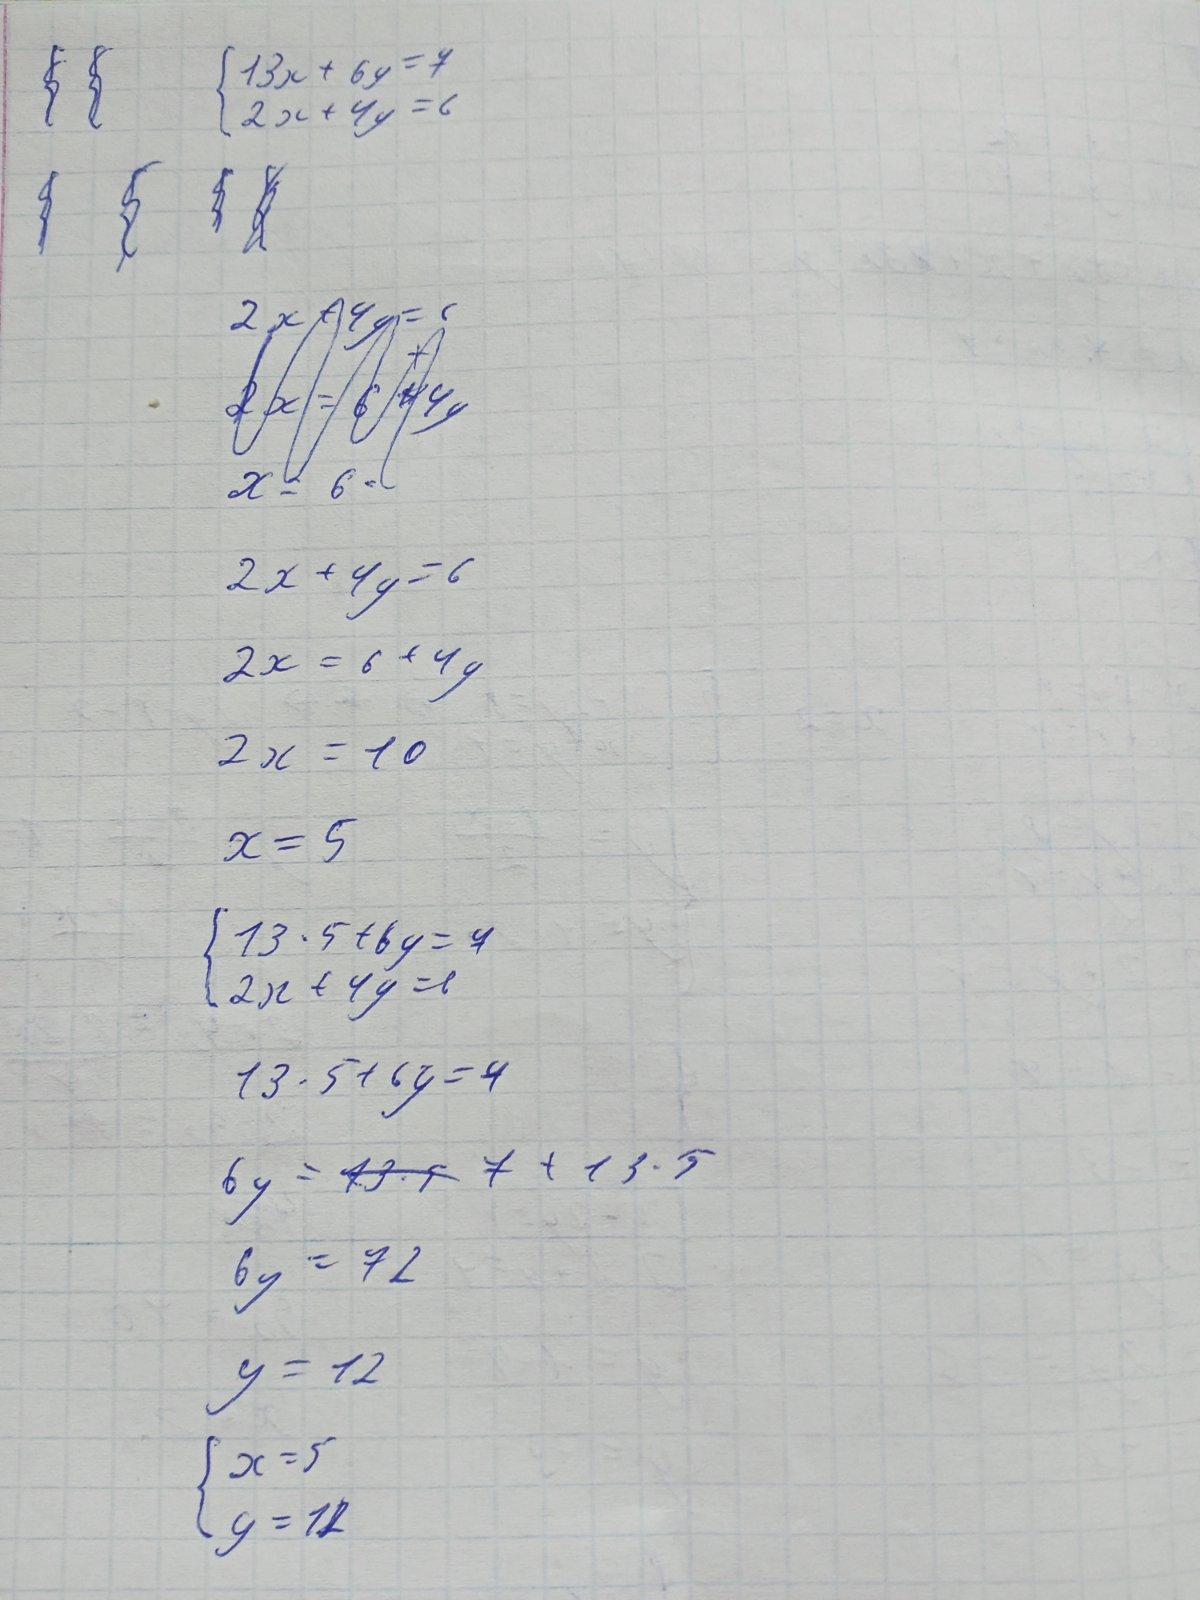 {13x + 6y = 7
2x + 4y = 6
2x + 4y = 6
2x = 6 + 4y
x = 6 -
2x + 4y = 6
2x = 6 + 4y
2x = 10
x = 5
{13 · 5 + 6y = 7
2x + 4y = 6
13 · 5 + 6y = 7
6y = 13 · 5 7 + 13 · 5
6y = 72
y = 12
{x = 5
y = 12